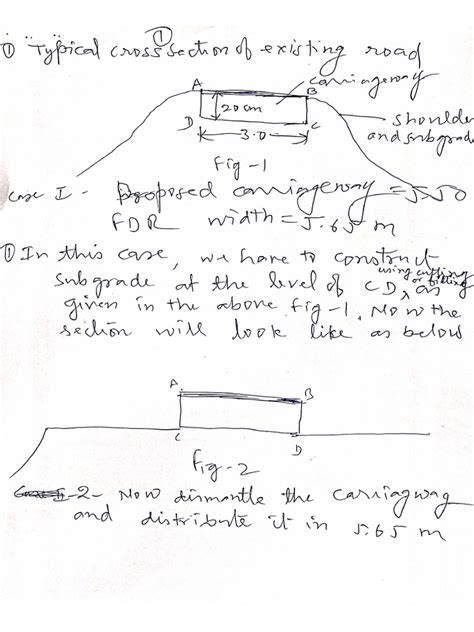 ①
① "Typical cross section of existing road
A
B
carriageway
20 cm
D
C
3.0
shoulder
and subgrade
Fig-1
Case I - Proposed carriageway = 5.50
FDR width = 5.65 m
① In this case, we have to construct
using cutting
or filling
subgrade at the level of CD, as
given in the above fig-1. Now the
section will look like as below
A
B
C
D
Fig-2
-2- Now dismantle the carriagway
and distribute it in 5.65 m